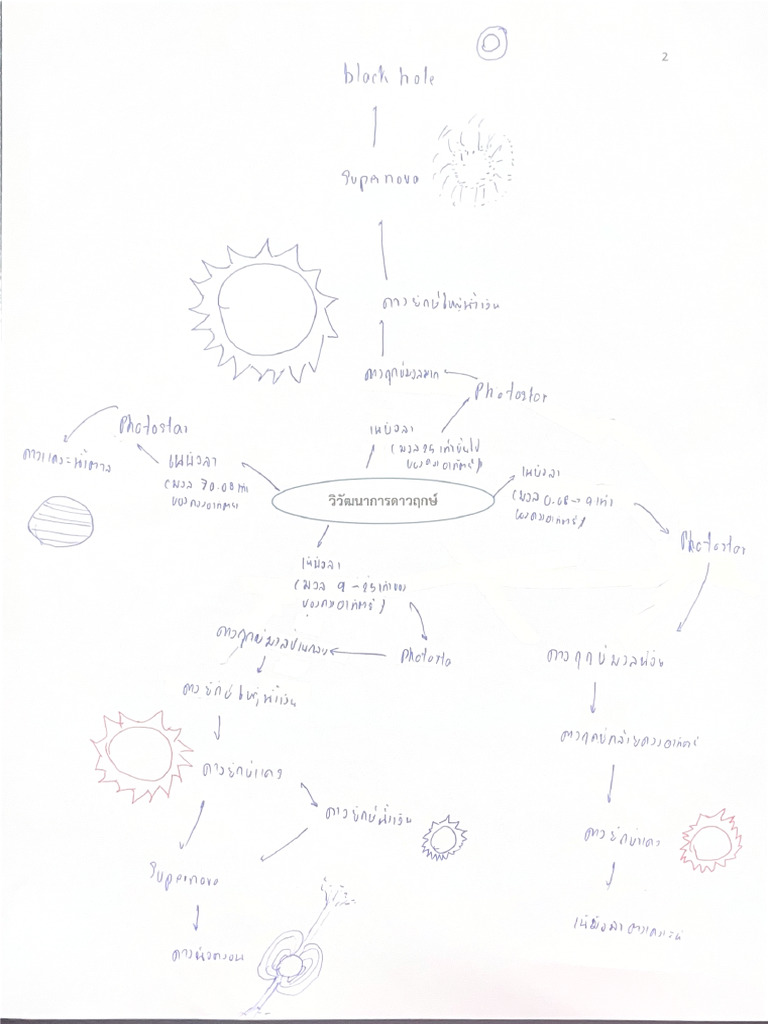 2
black hole
Supernova
ดาวยักษ์ใหญ่น้ำเงิน
ดาวฤกษ์มวลมาก
Photostar
เนบิวลา
(มวล 25 เท่าขึ้นไป
ของดวงอาทิตย์)
Photostar
ดาวแคระน้ำตาล
เนบิวลา
(มวล
ของดวงอาทิตย์
เนบิวลา
(มวล 0.08 → 9 เท่า
ของดวงอาทิตย์)
วิวัฒนาการดาวฤกษ์
Photostar
เนบิวลา
(มวล 9 - 25 เท่าของ
ของดวงอาทิตย์)
ดาวฤกษ์มวลปานกลาง
Photosta
ดาวฤกษ์มวลน้อย
ดาวยักษ์ใหญ่น้ำเงิน
ดาวฤกษ์คล้ายดวงอาทิตย์
ดาวยักษ์แดง
ดาวยักษ์น้ำเงิน
ดาวยักษ์แดง
Supernova
เนบิวลาดาวเคราะห์
ดาวนิวตรอน